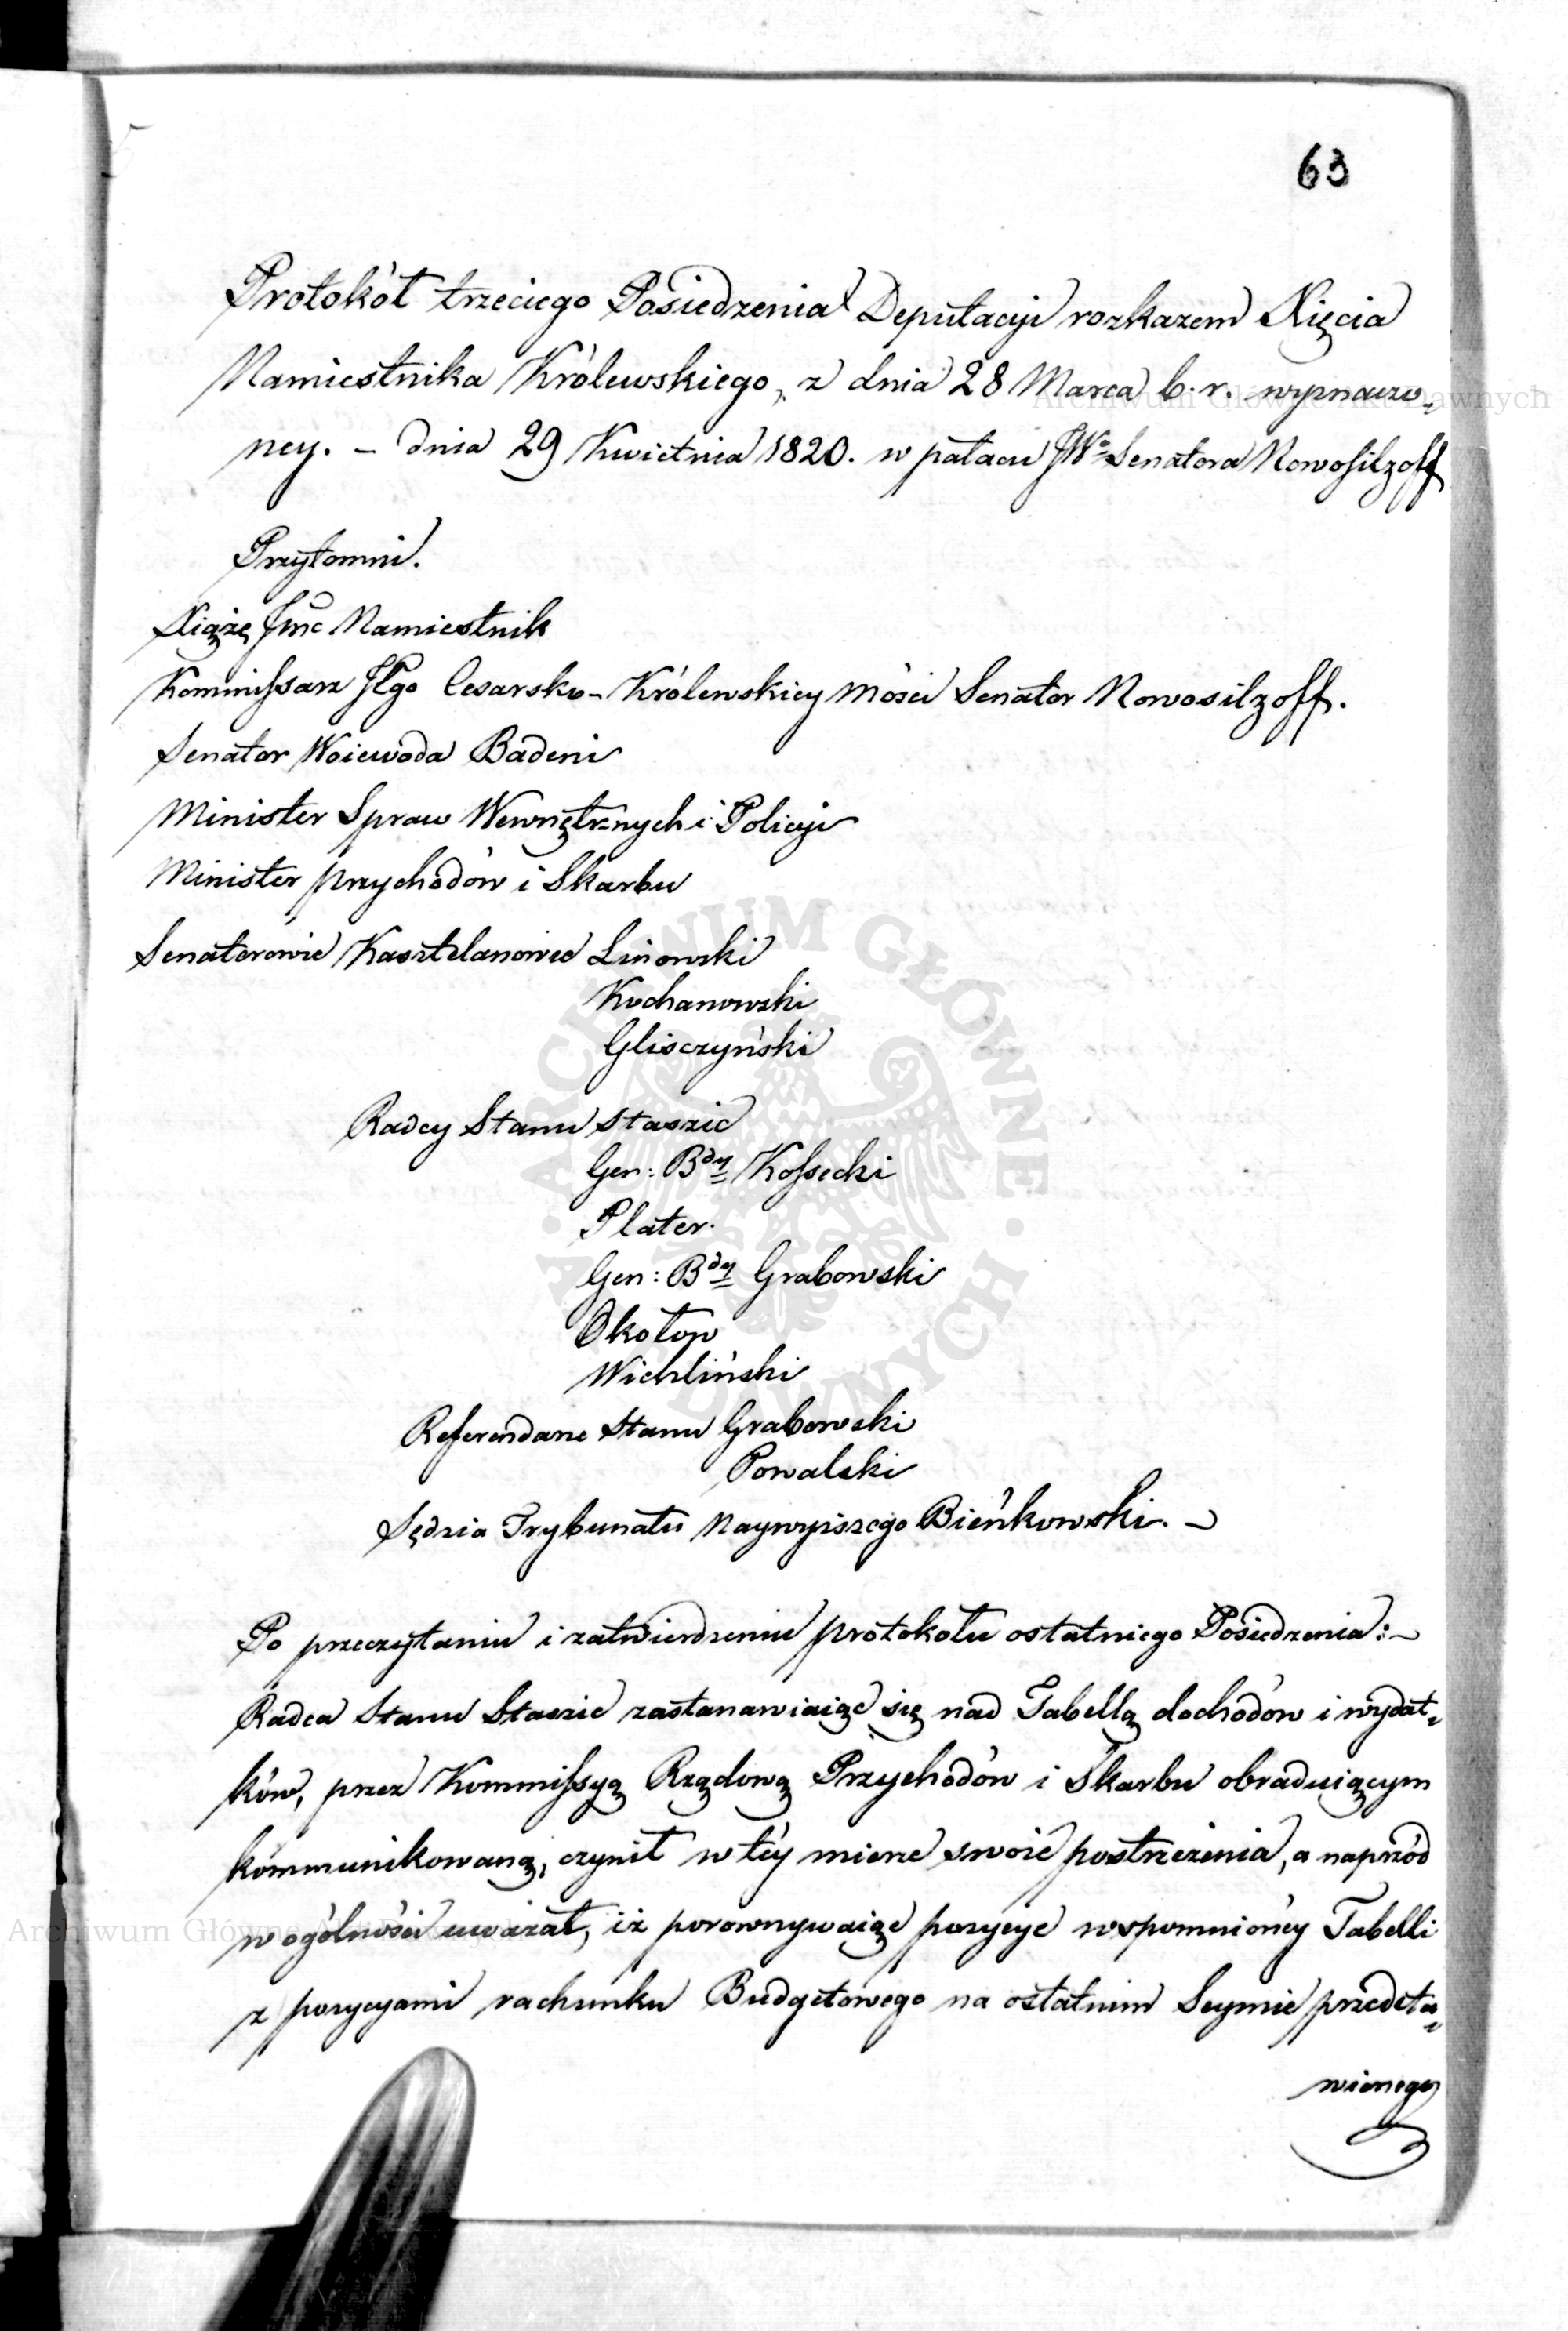 63
Protokół trzeciego Posiedzenia Deputacyi rozkazem Xięcia
Namiestnika Królewskiego, z dnia 28 Marca b. r. wyznaczo-
ney. – dnia 29 Kwietnia 1820. w pałacu JWo Senatora Nowosilzoff
Przytomni.
Xiążę Jmć Namiestnik
Kommissarz JEgo Cesarsko-Królewskiey Mości Senator Nowosilzoff.
Senator Woiewoda Badeni
Minister Spraw Wewnętrznych i Policyi
Minister Przychodów i Skarbu
Senatorowie Kasztelanowie Linowski
Kochanowski
Gliszczyński
Radcy Stanu Staszic
Gen: Bdy Kossecki
Plater.
Gen: Bdy Grabowski
Okołow
Wichliński
Referendarze Stanu Grabowski
Powalski
Sędzia Trybunału Naywyższego Bieńkowski. –
Po przeczytaniu i zatwierdzeniu protokołu ostatniego Posiedzenia: –
Radca Stanu Staszic zastanawiaiąc się nad Tabellą dochodów i wydat-
ków, przez Kommissyą Rządową Przychodów i Skarbu obraduiącym
kommunikowaną, czynił w téy mierze swoie postrzeżenia, a naprzód
w ogólności uważał, iż porównywaiąc pozycye wspomnionéy Tabelli
z pozycyami rachunku Budgetowego na ostatnim Seymie przedsta-
wionego
Archiwum Główne Akt Dawnych
ARCHIWUM GŁÓWNE AKT DAWNYCH